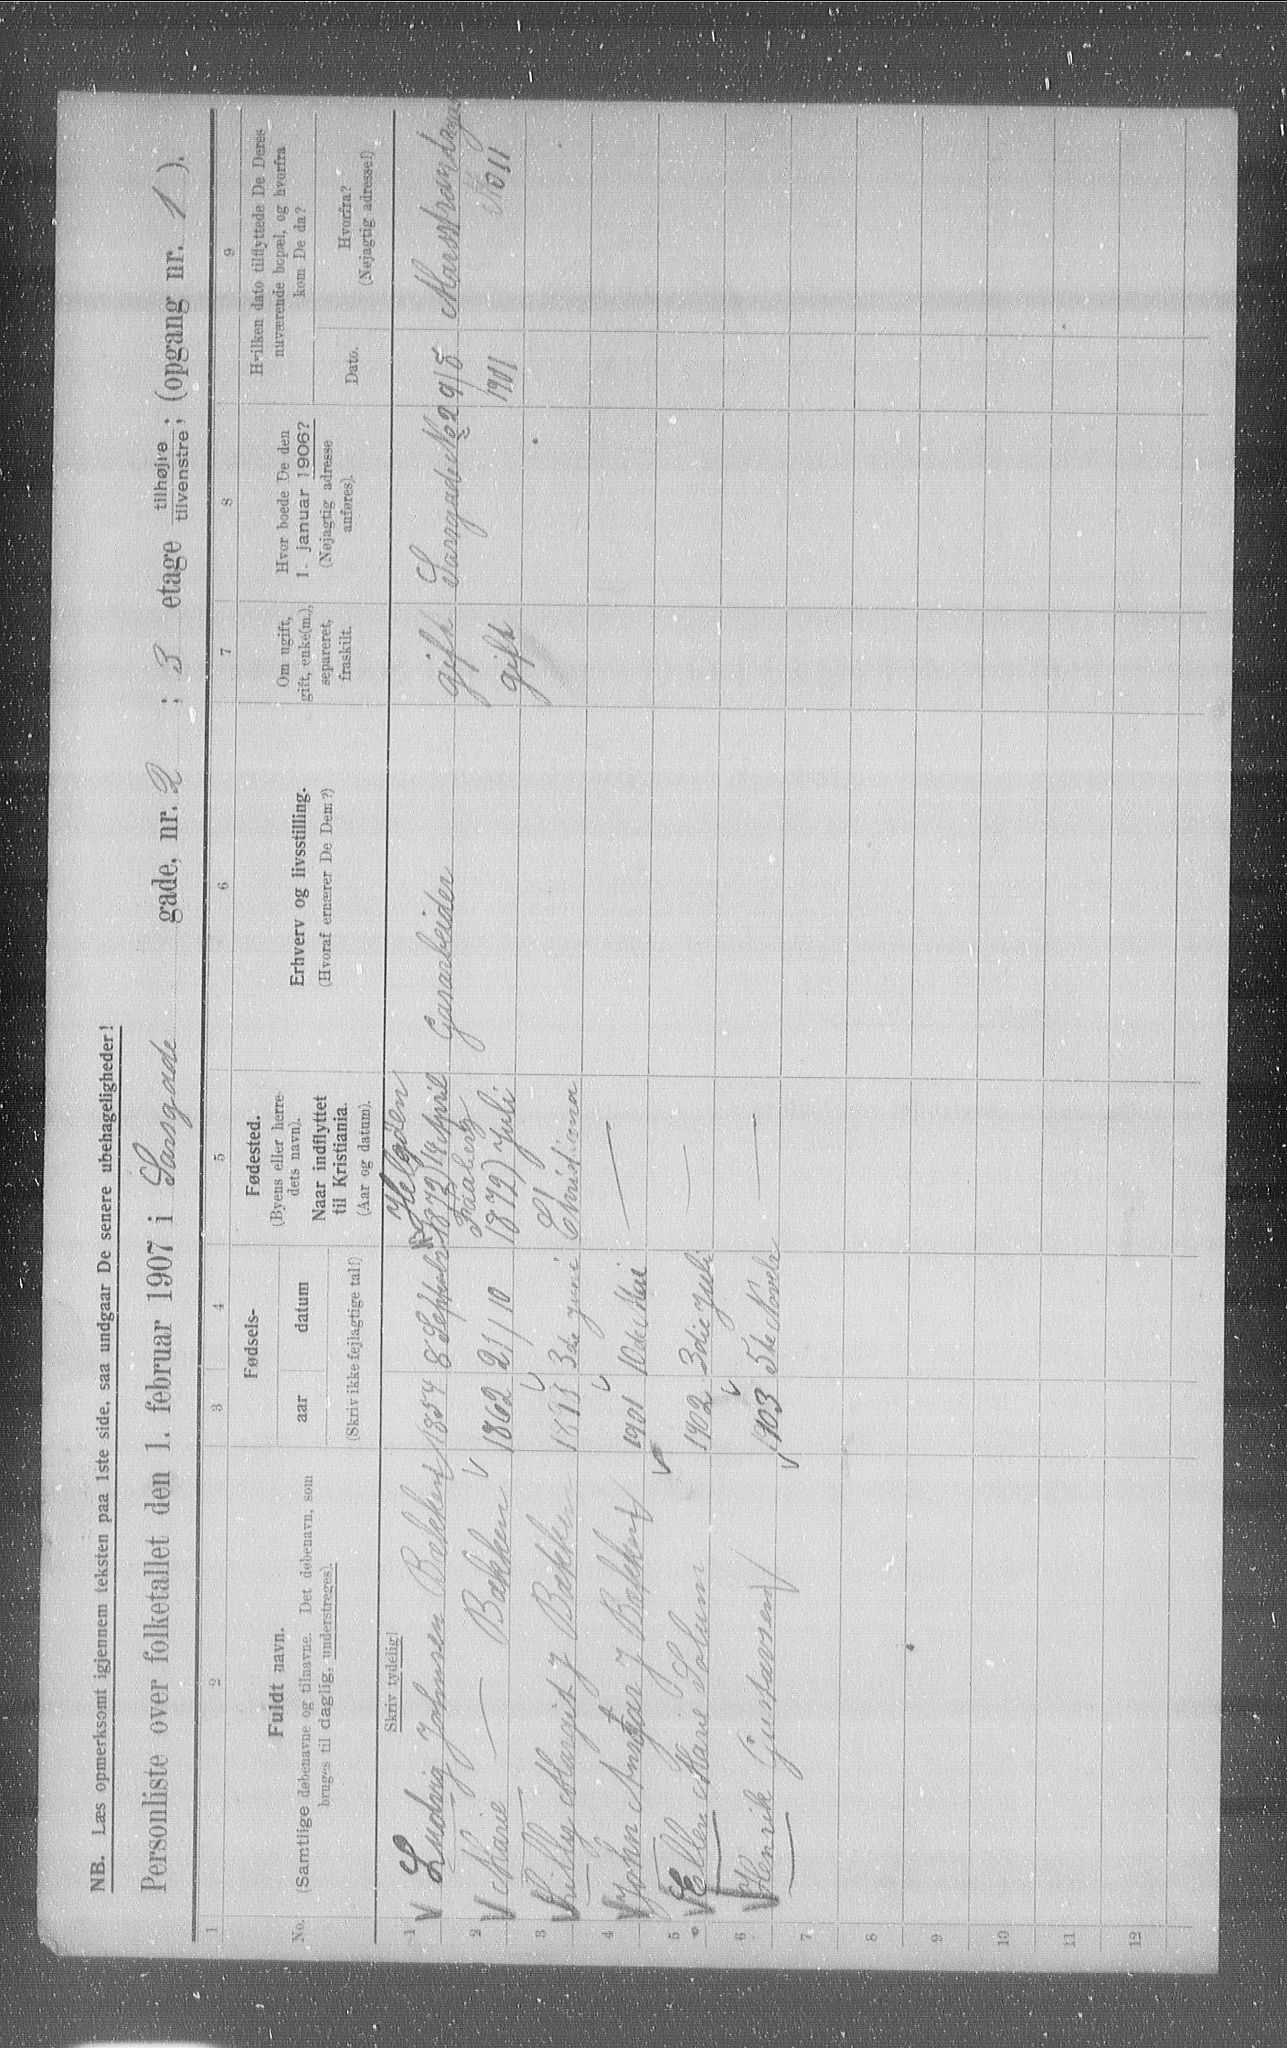 NB. Læs opmerksomt igjennem teksten paa 1ste side, saa undgaar De senere ubehageligheder!
Personliste over folketallet den 1. februar 1907 i Sarsgade gade, nr. 2 ; 3 etage tilhøjre tilvenstre ; (opgang nr. 1 ).
1 2 3 4 5 6 7 8 9
No.
Fuldt navn.
(Samtlige døbenavne og tilnavne. Det døbenavn, som
bruges til daglig, understreges).
Skriv tydelig!
Fødsels-
aar datum
(Skriv ikke fejlagtige tal!)
Fødested.
(Byens eller herre-
dets navn).
Naar indflyttet
til Kristiania.
(Aar og datum).
Erhverv og livsstilling.
(Hvoraf ernærer De Dem?)
Om ugift,
gift, enke(m.),
separeret,
fraskilt.
Hvor boede De den
1. januar 1906?
(Nøjagtig adresse
anføres).
Hvilken dato tilflyttede De Deres
nuværende bopæl, og hvorfra
kom De da?
Dato.
Hvorfra?
(Nøjagtig adresse!)
1 Ludvig Johnsen Bækken 1854 8 Septbr 1872) 14 April Gasarbeider gift Sarsgade No 2 29/5 1901 No 11
2 Marie — Bækken 1862 21/10 Faaberg 1872) Juli gift
3 Lilly Margit J Bækken 3die juni Christiania
4 John Ansgar J Bækken 1901 10de Mai —
5 Ellen Marie Solum 1902 3die Juli —
6 Henrik Gustavsen 1903 5te Novbr —
7
8
9
10
11
12